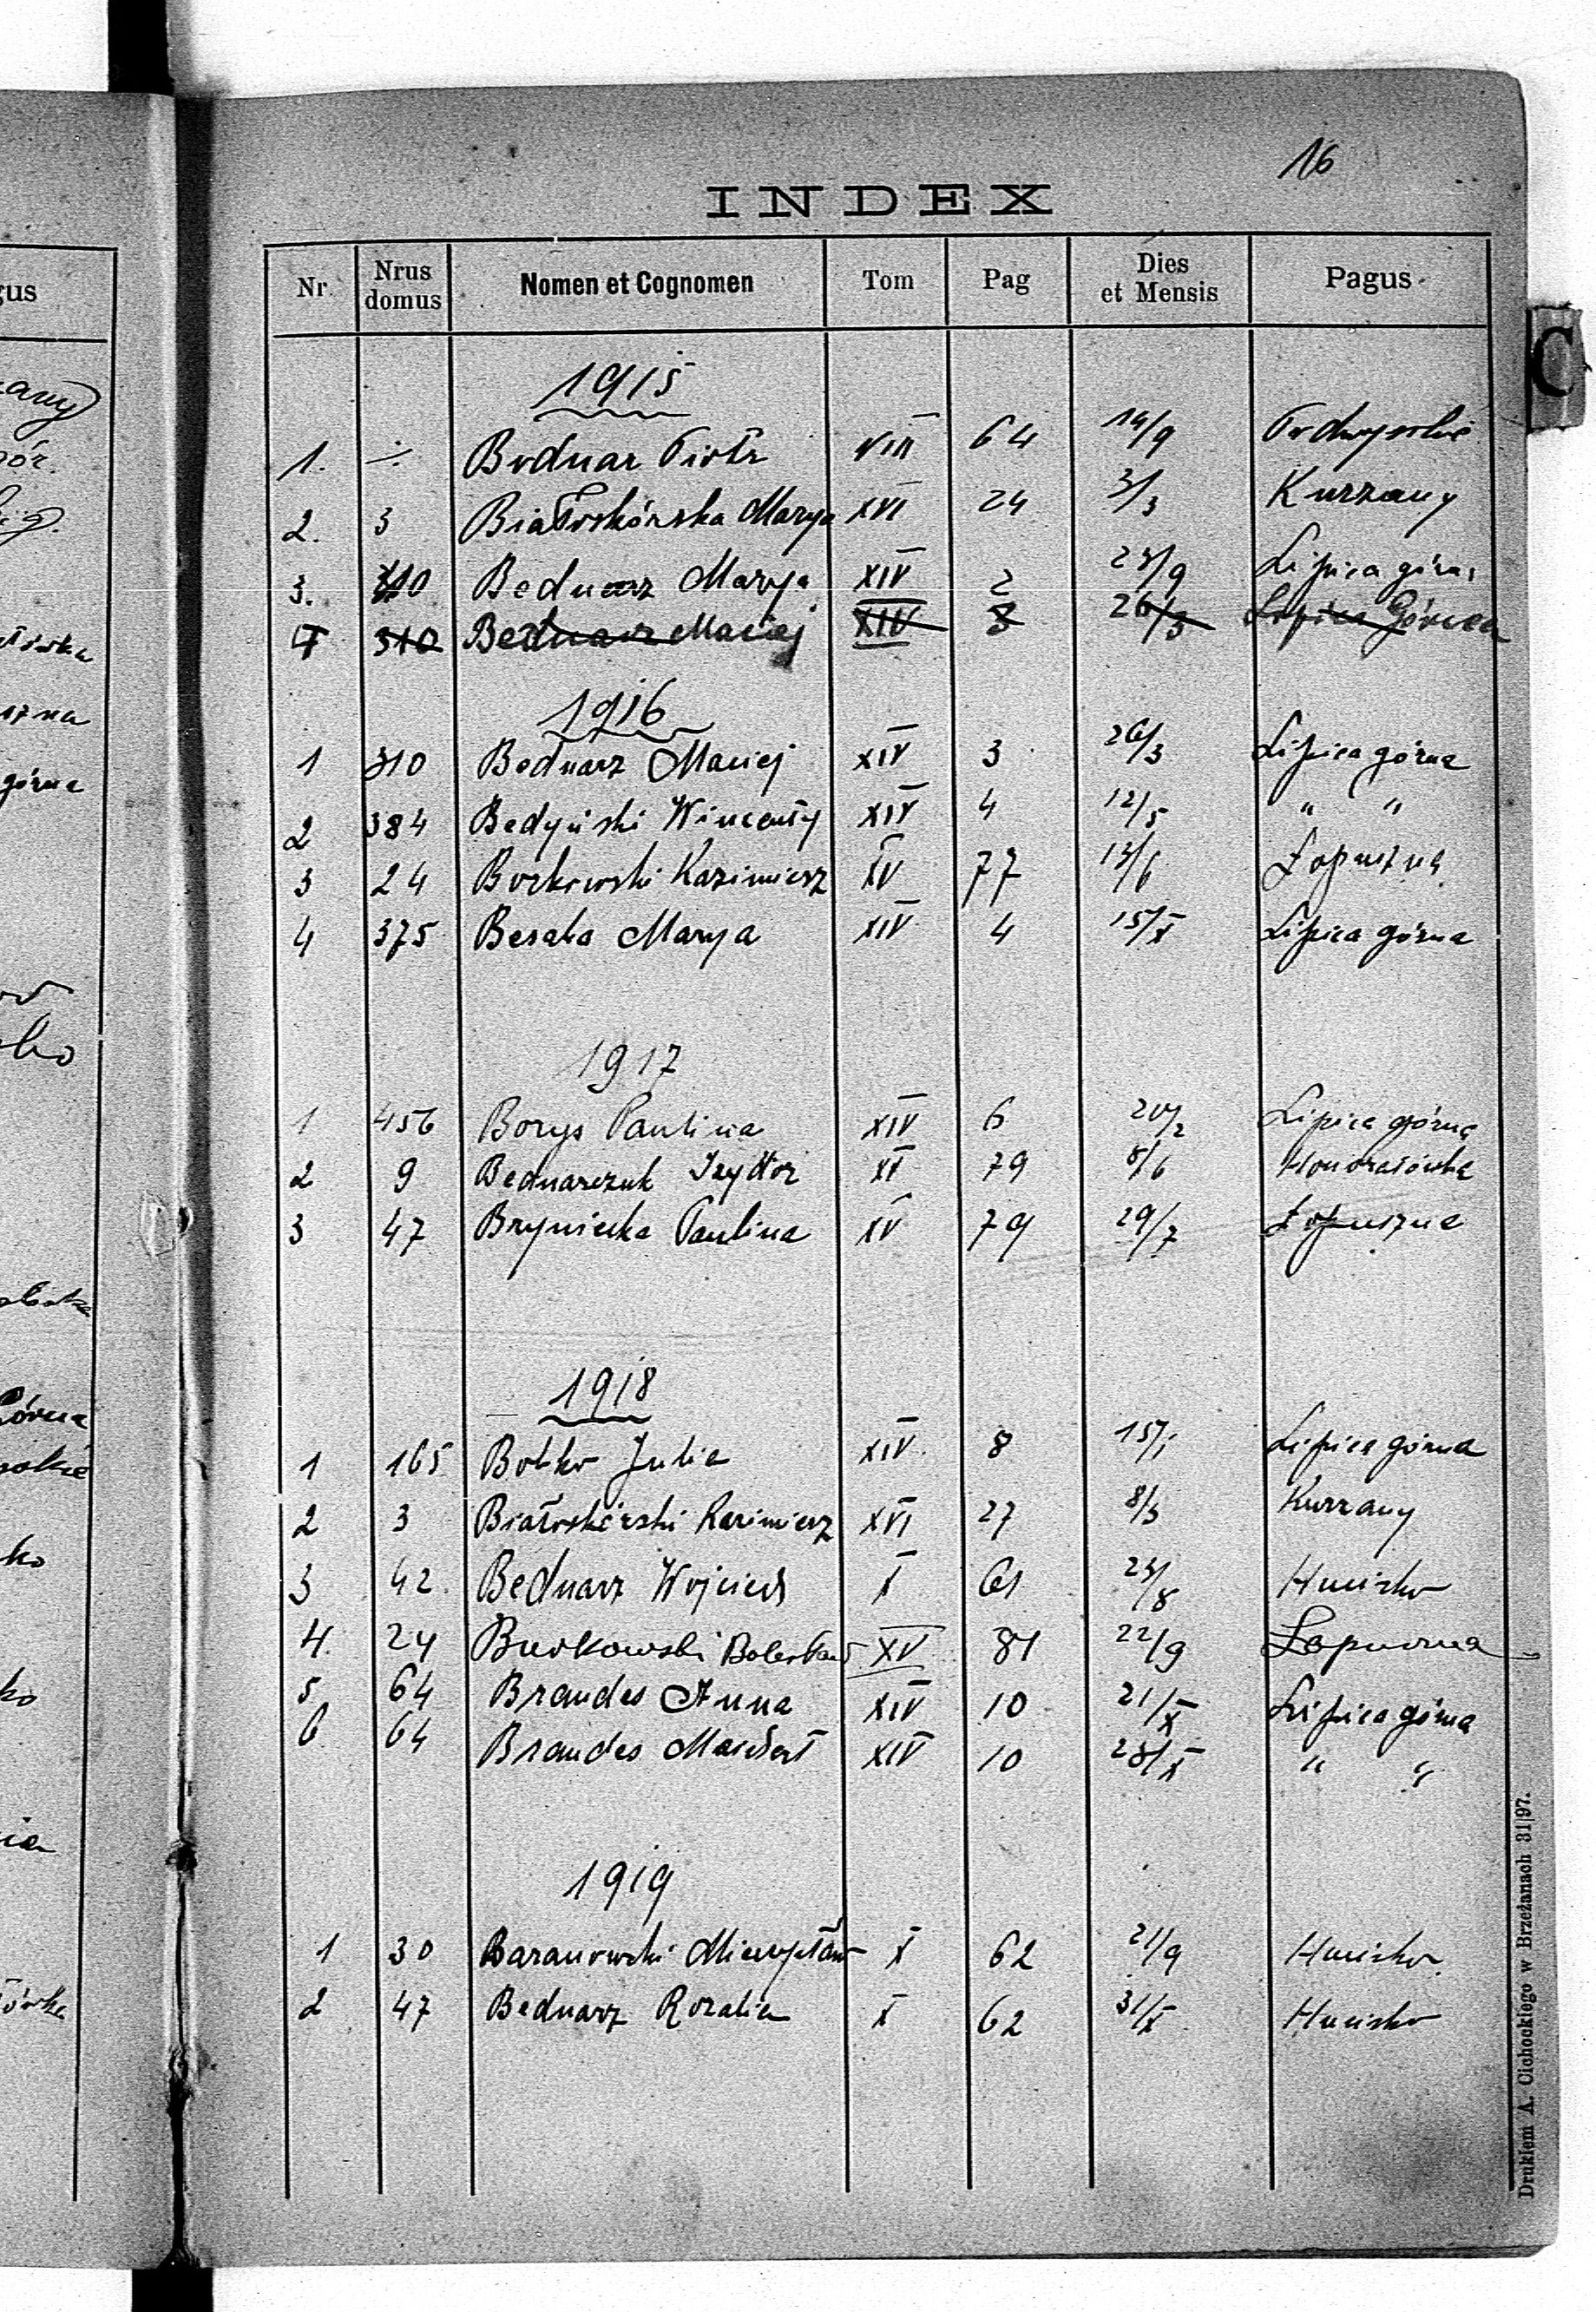 16
INDEX
Nr. Nrus domus Nomen et Cognomen Tom Pag Dies et Mensis Pagus
1915
1. ÷ Bodnar Piotr VIII 64 14/9 Podwysokie
2. 3 Białoskórska Marya XVI 24 3/3 Kurzany
3. 310 Bednarz Marya XIV 2 23/9 Lipica górna
4 310 Bednarz Maciej XIV 3 26/3 Lipica Górna
1916
1 310 Bednarz Maciej XIV 3 26/3 Lipica górna
2 384 Bedyński Wincenty XIV 4 12/5 " "
3 24 Borkowski Kazimierz XV 77 13/6 Łopuszna
4 375 Marya XIV 4 15/X Lipica górna
1917
1 456 Borys Paulina XIV 6 20/2 Lipica górna
2 9 Bednarczuk Izydor XI 79 8/6 Honoratówka
3 47 Bryniecka Paulina XV 79 29/7 Łopuszna
1918
1 165 Botko Julia XIV 8 15/1 Lipica górna
2 3 Białoskórski Kazimierz XVI 27 8/3 Kurzany
3 42 Bednarz Wojciech X 61 23/8 Hucisko
4. 24 Burkowski Bolesław XV 81 22/9 Łopuszna
5 64 Brandes Anna XIV 10 21/X Lipica górna
6 64 Brandes XIV 10 28/X " "
1919
1 30 Baranowski Mieczysław X 62 21/9 Hucisko
2 47 Bednarz Rozalia X 62 31/X Hucisko
Drukiem A. Cichockiego w Brzeżanach 31|97.
C